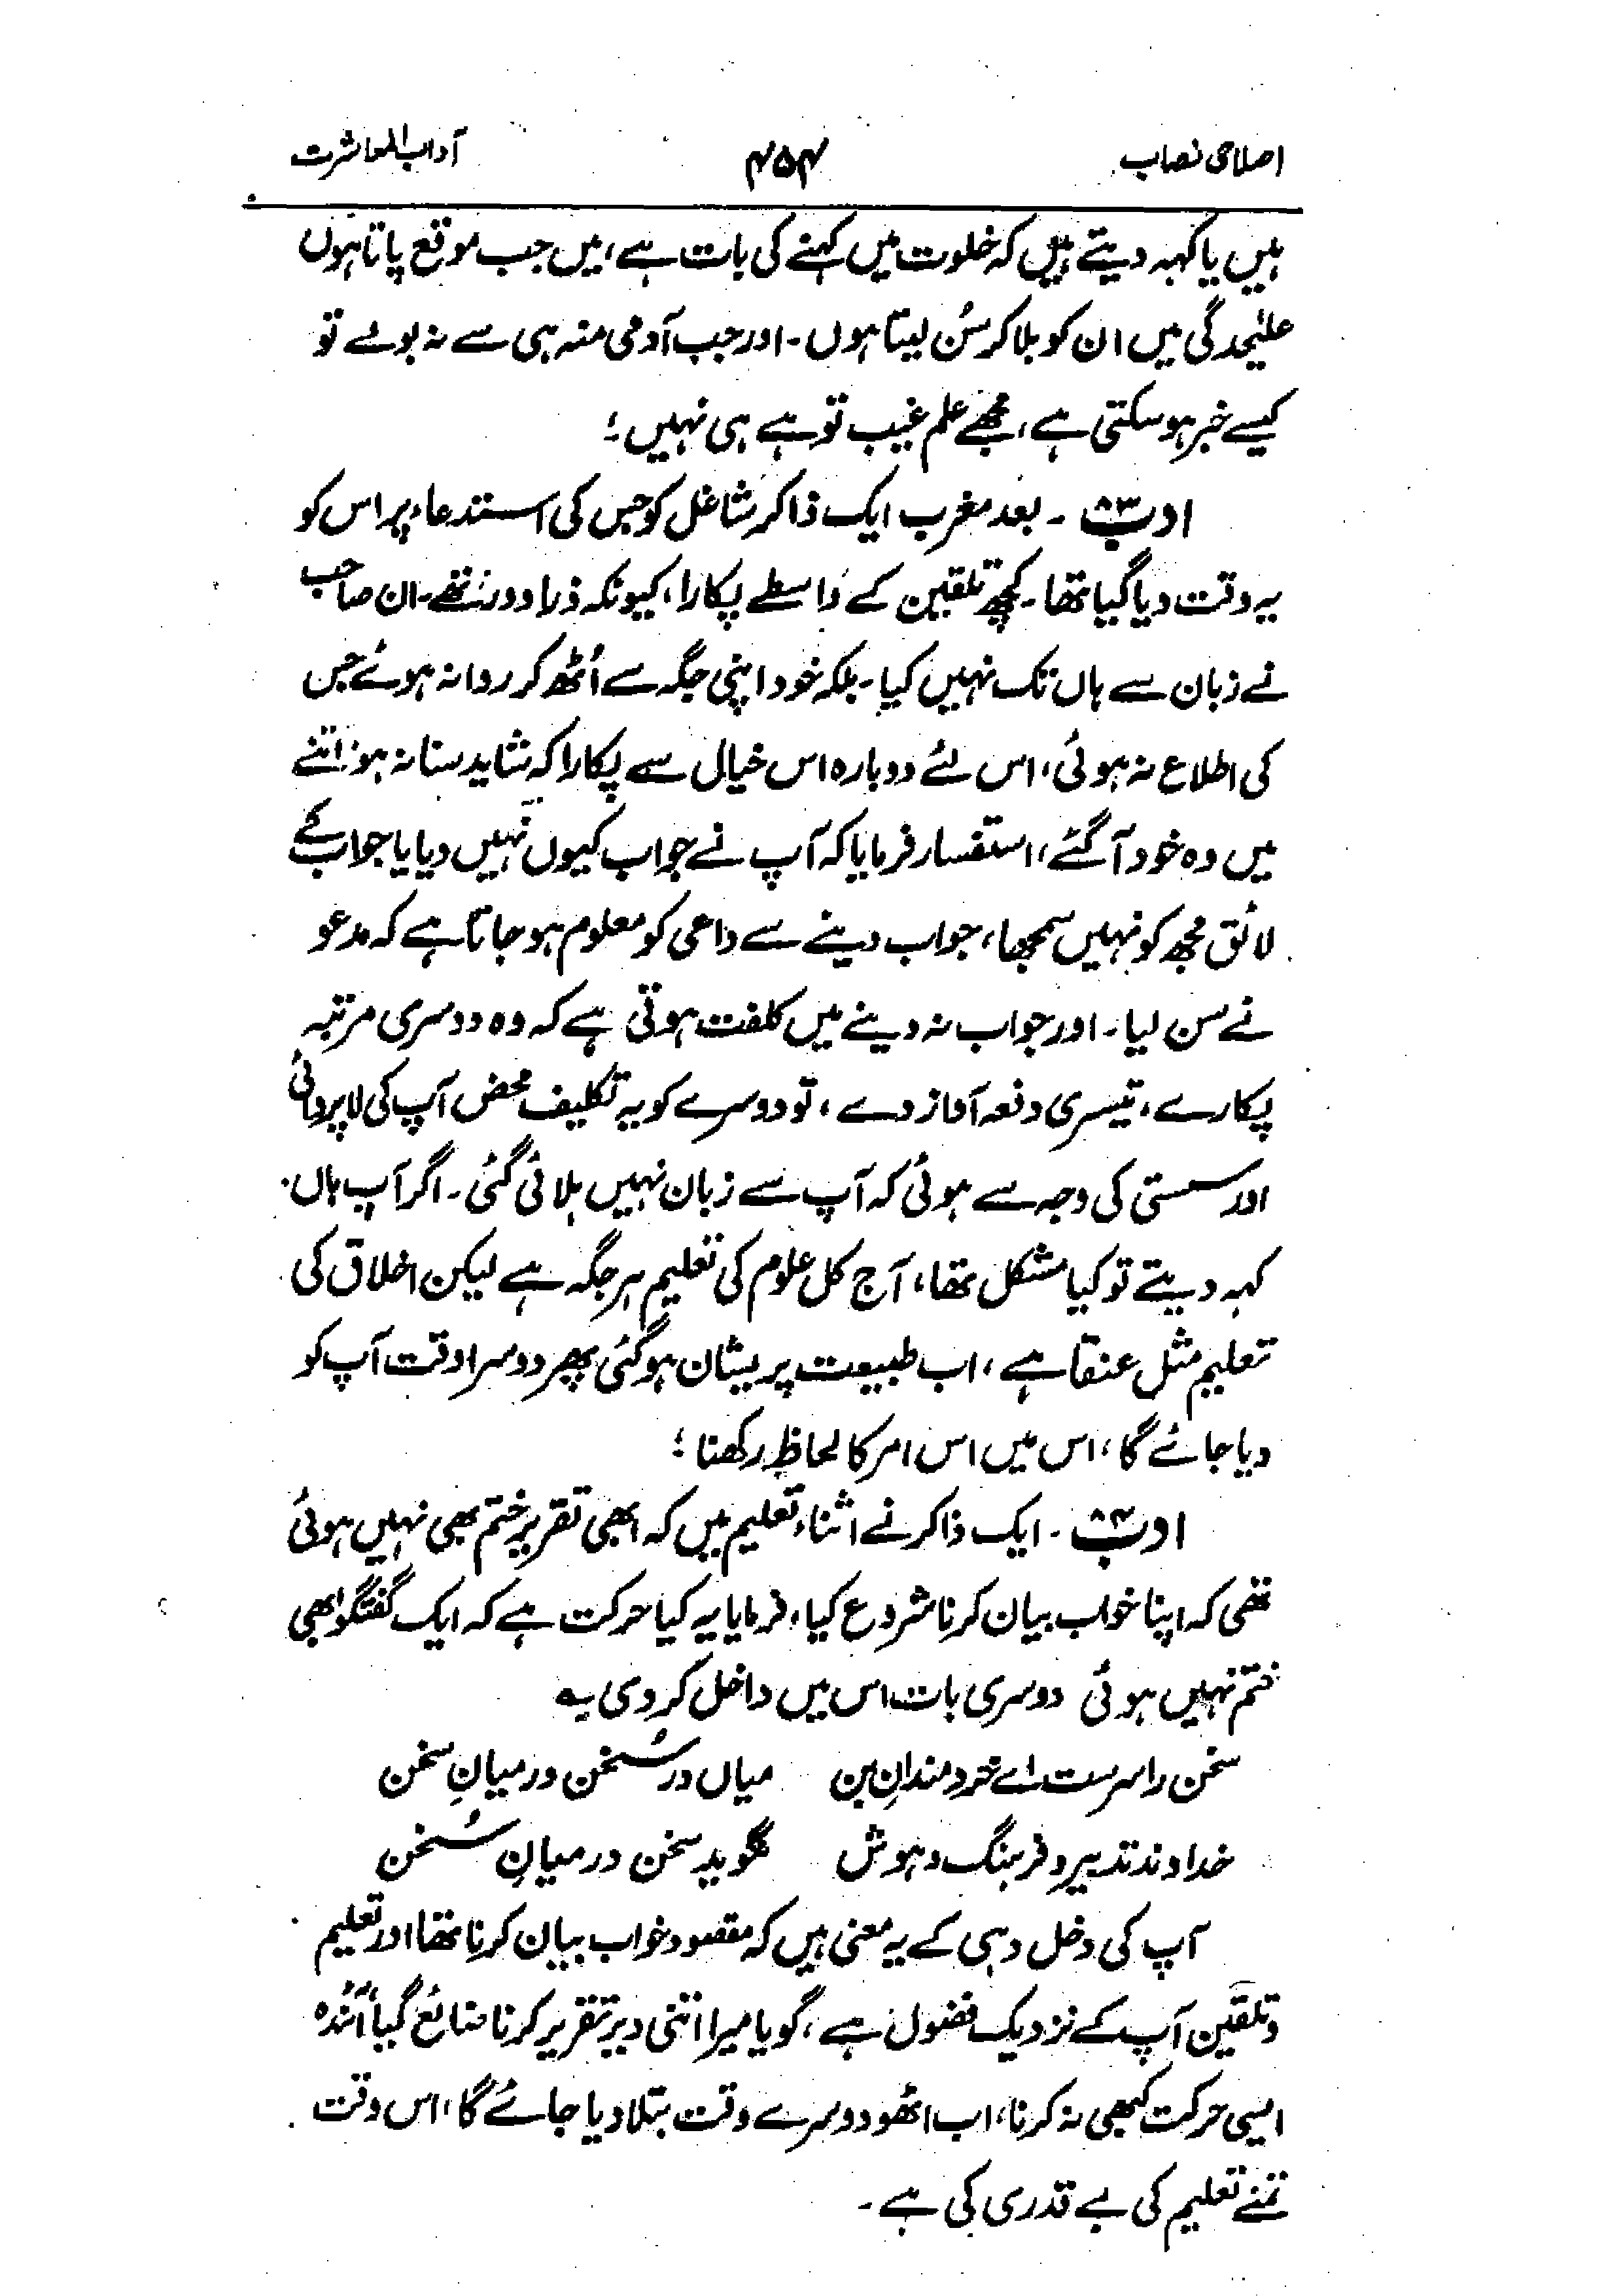 اصلاحی نصاب ۴۵۴ آداب المعاشرت
ہیں یا کہہ دیتے ہیں کہ خلوت میں کہنے کی بات ہے، میں جب موقع پاتا ہوں
علیٰحدگی میں ان کو بلا کر سُن لیتا ہوں۔ اور جب آدمی منہ ہی سے نہ بولے تو
کیسے خبر ہو سکتی ہے، مجھے علم غیب تو ہے ہی نہیں؛
ادب ۸۳۔ بعد مغرب ایک ذاکر شاغل کو جس کی استدعاء پر اس کو
یہ وقت دیا گیا تھا۔ کچھ تلقین کے واسطے پکارا، کیونکہ ذرا دور تھے۔ ان صاحب
نے زبان سے ہاں تک نہیں کیا۔ بلکہ خود اپنی جگہ سے اُٹھ کر روانہ ہوئے جس
کی اطلاع نہ ہوئی، اس لئے دوبارہ اس خیال سے پکارا کہ شاید سنا نہ ہو اتنے
میں وہ خود آگئے، استفسار فرمایا کہ آپ نے جواب کیوں نہیں دیا یا جواب کے
لائق مجھ کو نہیں سمجھا، جواب دینے سے داعی کو معلوم ہو جاتا ہے کہ مدعو
نے سن لیا۔ اور جواب نہ دینے میں کلفت ہوتی ہے کہ وہ دوسری مرتبہ
پکارے، تیسری دفعہ آواز دے، تو دوسرے کو یہ تکلیف محض آپ کی لاپروائی
اور سستی کی وجہ سے ہوئی کہ آپ سے زبان نہیں ہلائی گئی۔ اگر آپ ہاں
کہہ دیتے تو کیا مشکل تھا، آج کل علوم کی تعلیم ہر جگہ ہے لیکن اخلاق کی
تعلیم مثل عنقا ہے، اب طبیعت پریشان ہوگئی پھر دوسرا وقت آپ کو
دیا جائے گا، اس میں اس امر کا لحاظ رکھنا؛
ادب ۸۴۔ ایک ذاکر نے اثناء تعلیم میں کہ ابھی تقریر ختم بھی نہیں ہوئی
تھی کہ اپنا خواب بیان کرنا شروع کیا، فرمایا یہ کیا حرکت ہے کہ ایک گفتگو ابھی
ختم نہیں ہوئی دوسری بات اس میں داخل کر دی ؎
سخن را سرست اے خردمندانِ بن میاں در سُخن درمیانِ سخن
خداوند تدبیر و فرہنگ و ہوش نگوید سخن درمیانِ سُخن
آپ کی دخل دہی کے یہ معنی ہیں کہ مقصود خواب بیان کرنا تھا اور تعلیم
و تلقین آپ کے نزدیک فضول ہے، گویا میرا اتنی دیر تقریر کرنا ضائع گیا آئندہ
ایسی حرکت کبھی نہ کرنا، اب اٹھو دوسرے وقت بتلا دیا جائے گا، اس وقت
تمنے تعلیم کی بے قدری کی ہے۔